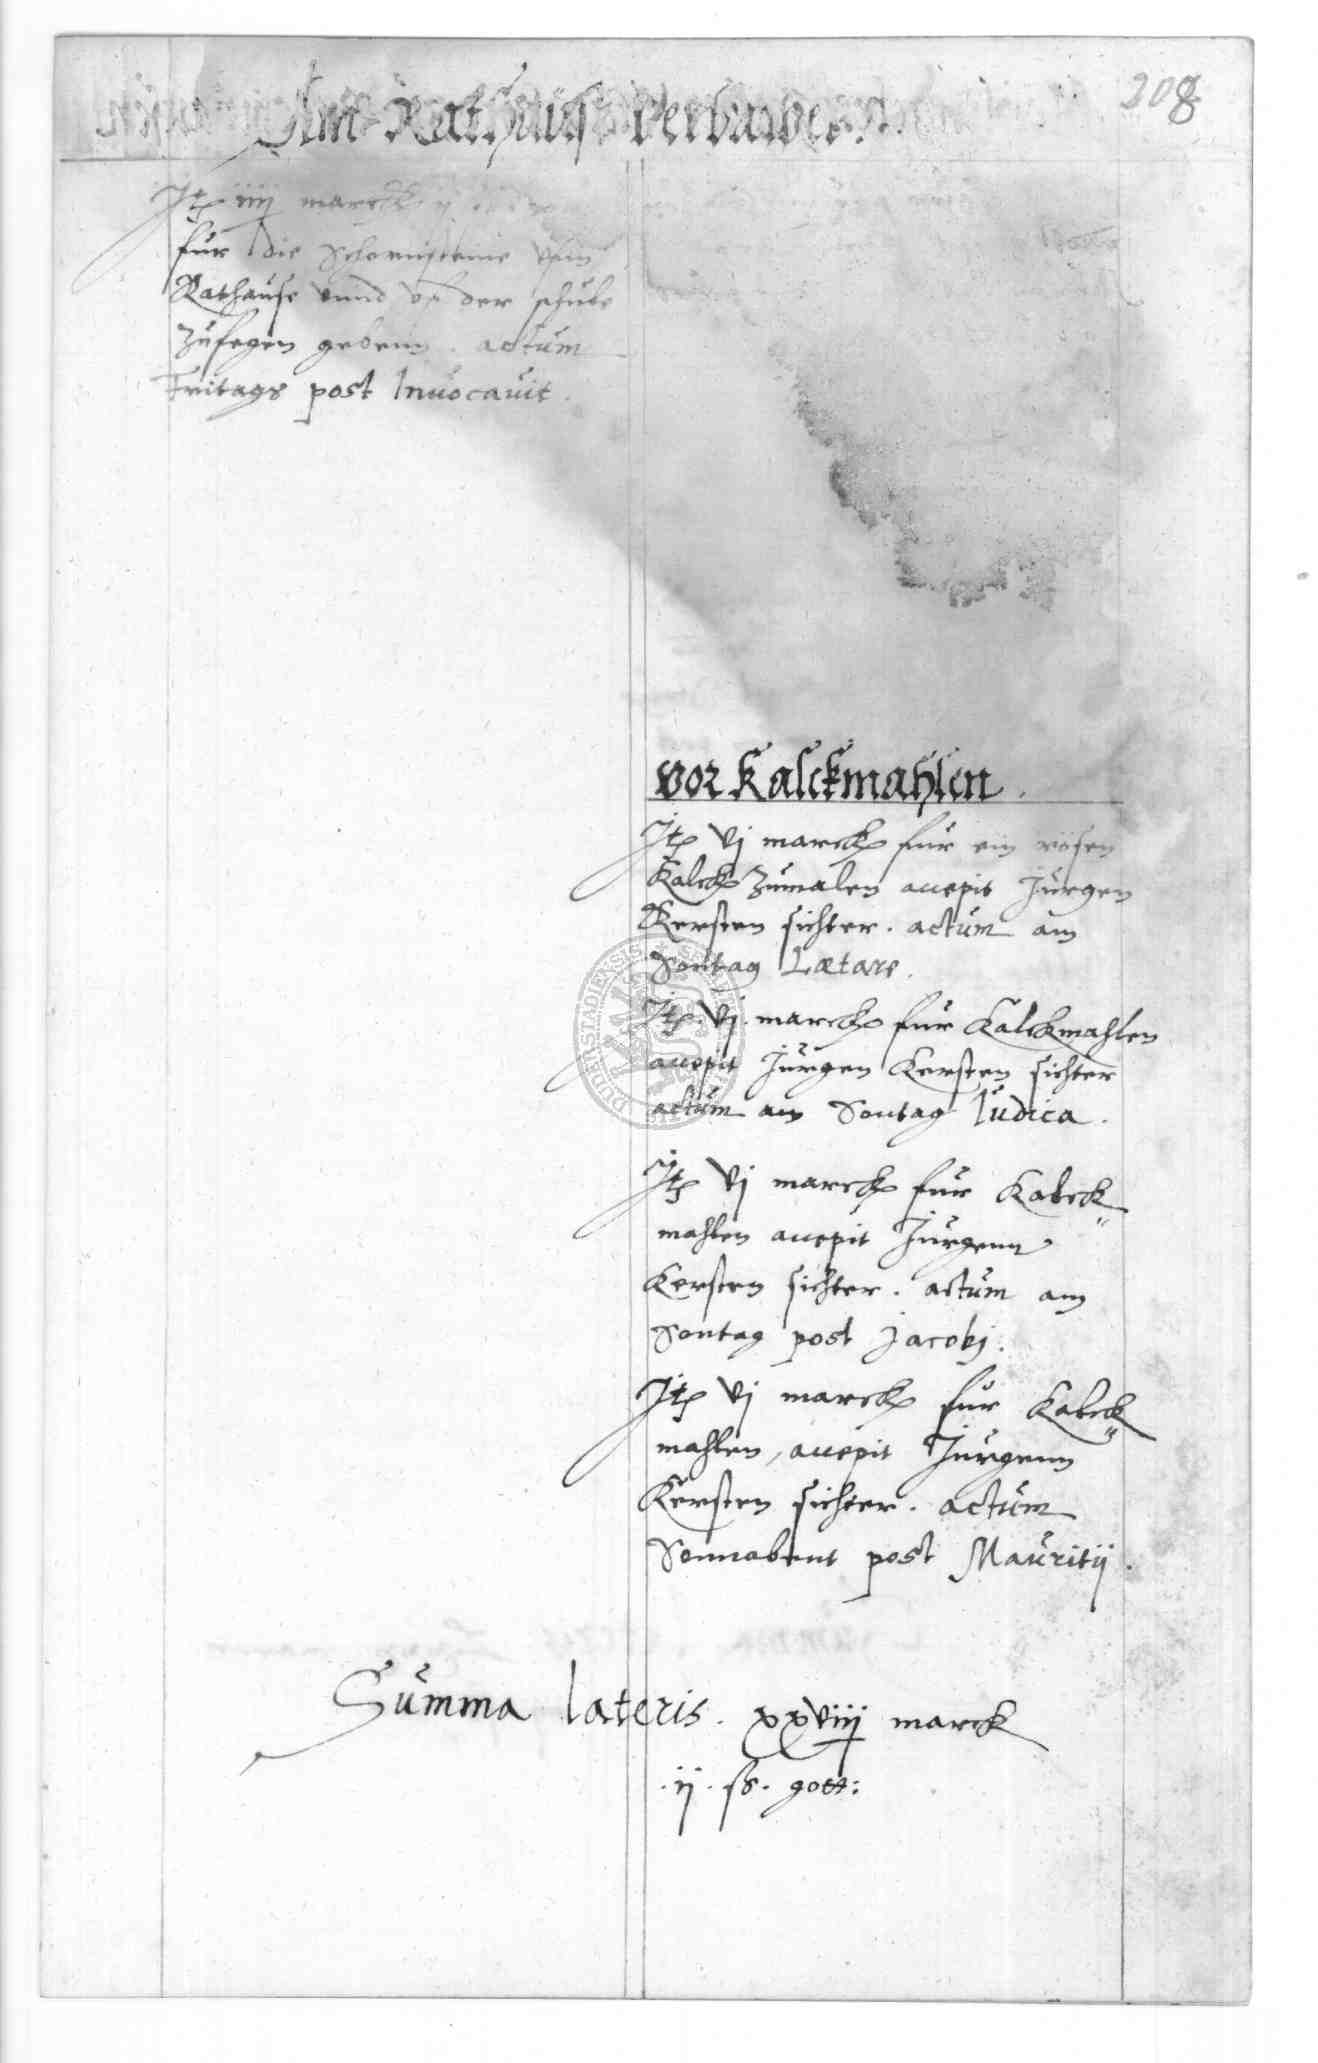 208
Am Rathaus verbawet
Jt iiij marck ij
für die Schornsteine vfm
Rathause vnnd vf der schule
zufegen gebenn . actum
Fritags post Inuocauit .
vor Kalckmahlen .
Jt vj marck für ein rösen
Kalck zumalen accepit Jürgen
Kersten sichter . actum am
Sontag Lætare .
Jt . vj . marck für Kalckmahlen
accepit Jürgen Kersten sichter
actum am Sontag Iudica .
Jt vj marck für Kalck"
mahlen accepit Jürgenn
Kersten sichter . actum am
Sontag post Jacobj .
Jt vj marck für Kalck"
mahlen , accepit Jürgenn
Kersten sichter . actum
Sonnabent post Mauritij .
Summa lateris . xxviij marck
. ij . ß . gott :